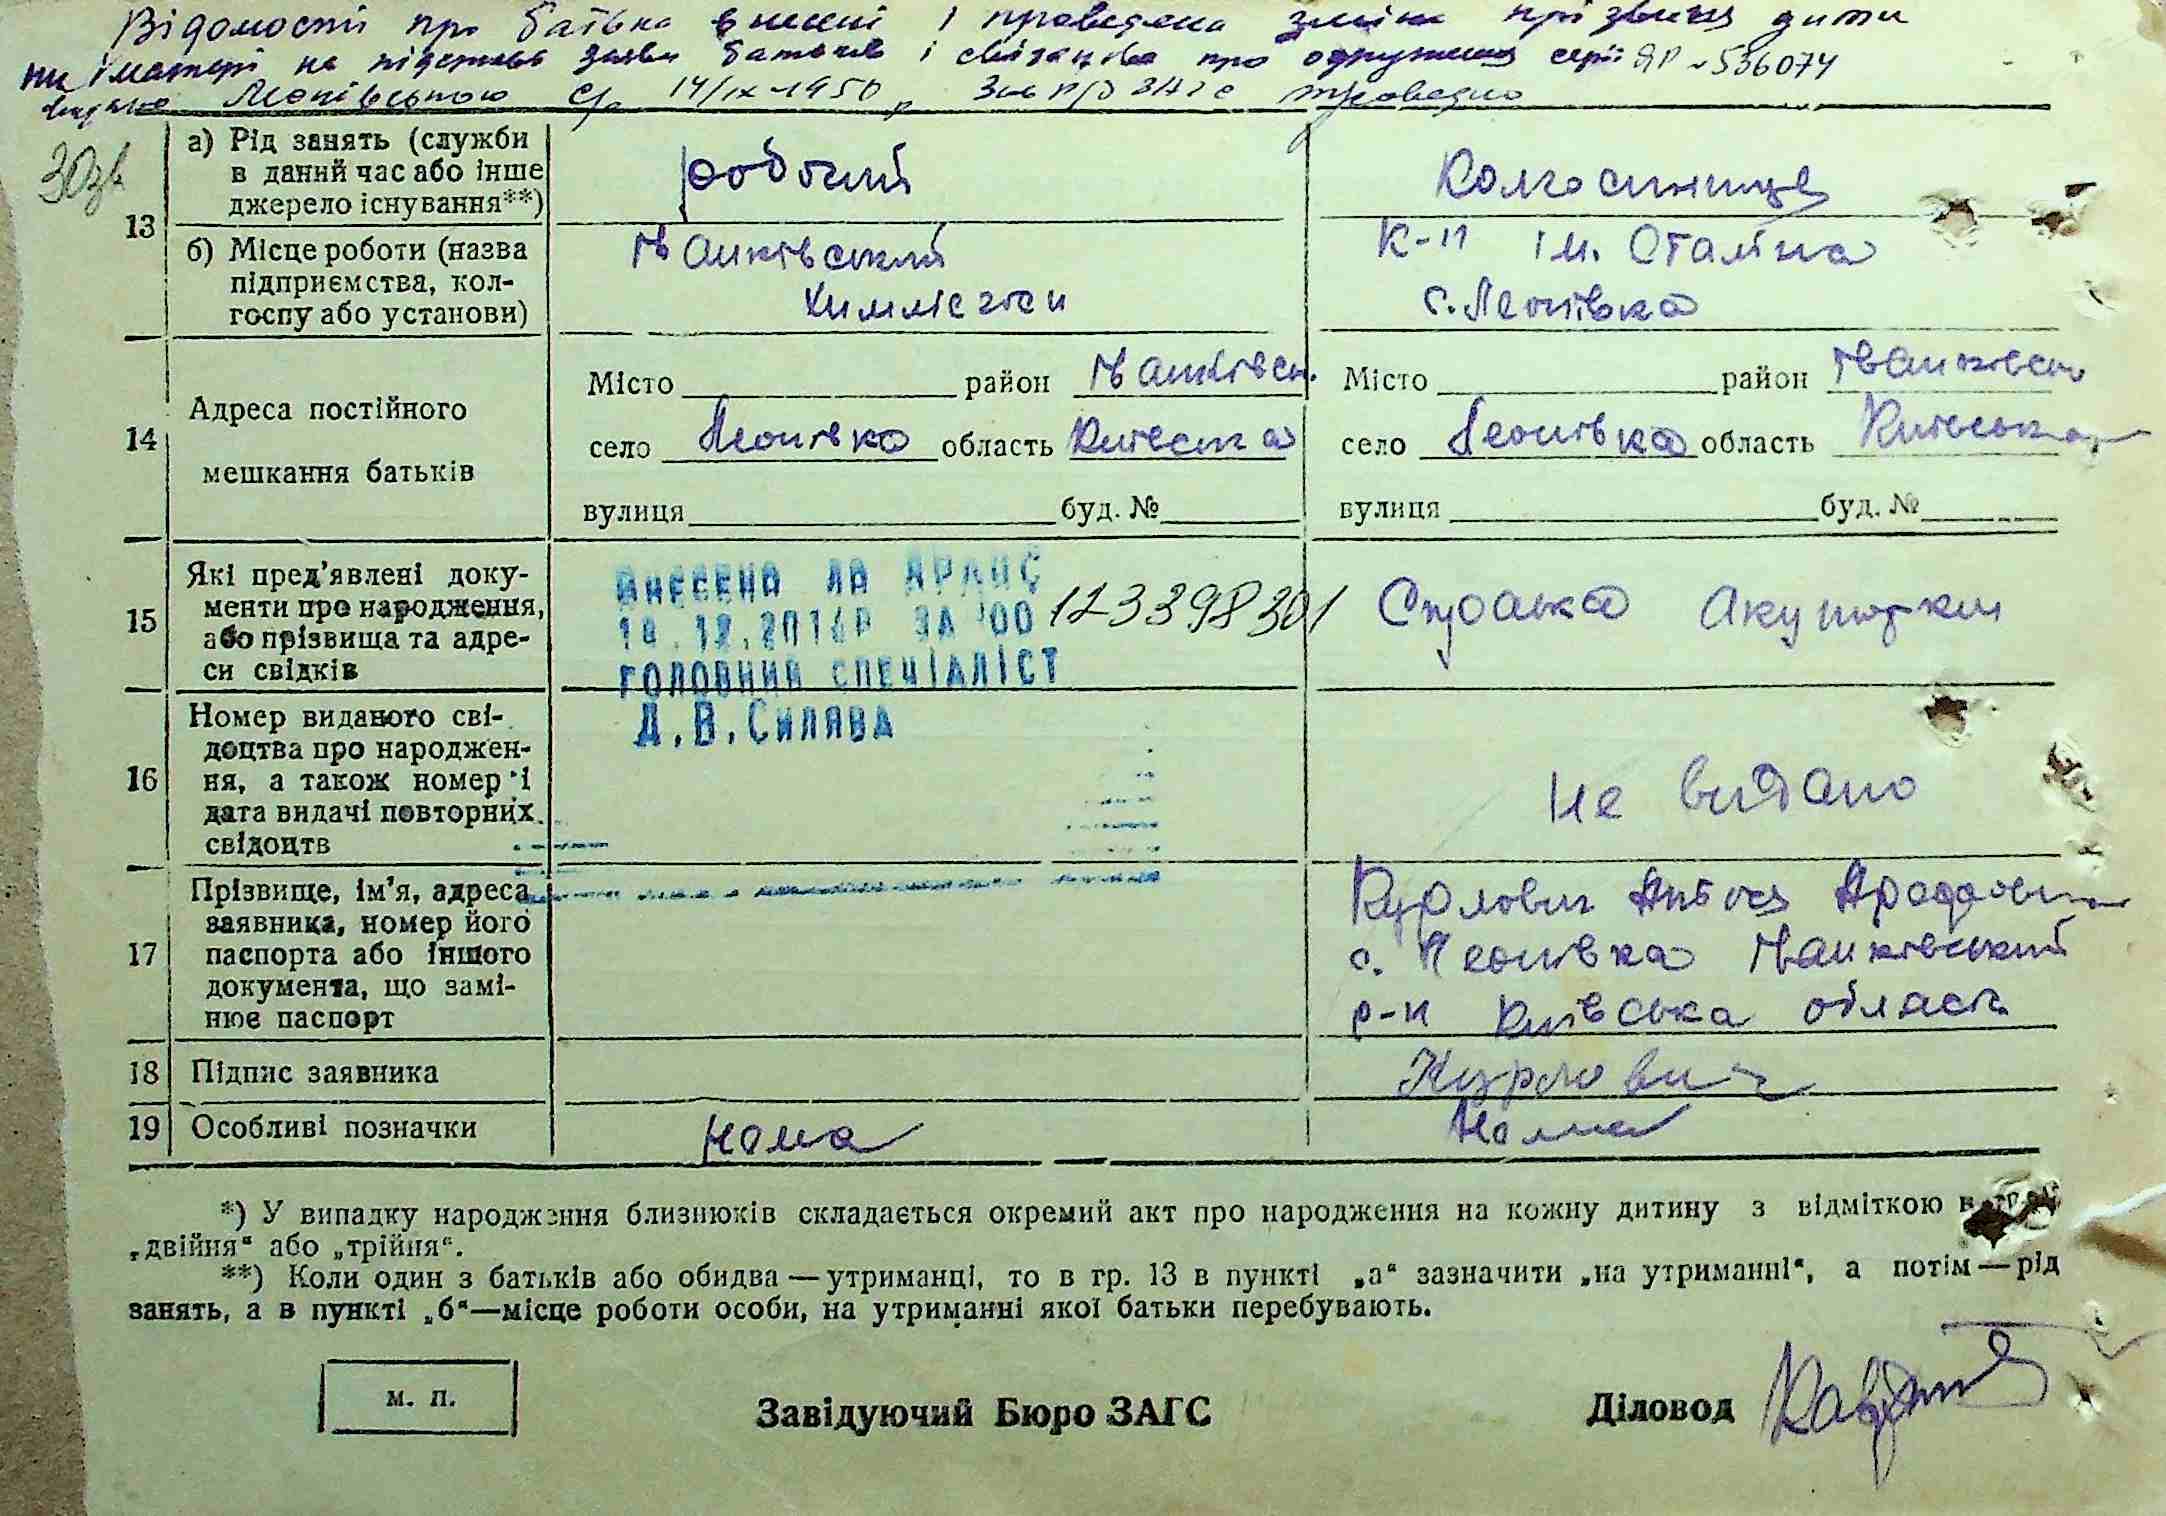 Відомості про батька внесені і проведена зміна прізвища дити
ни і матері на підставі заяви батьків і свідоцтва про одруження серії ЯР №536074
видано Леонівською с/р 14/ІХ-1950р
а) Рід занять (служби
в даний час або інше
джерело існування**)
робочий
Колгоспниця
13
б) Місце роботи (назва
підприємства, кол-
госпу або установи)
Іванківський
Химлісгосп
К-п ім. Сталіна
с. Леонівка
14
Адреса постійного
мешкання батьків
Місто район Іванківськ.
село Леонівка область Київська
вулиця буд. №
Місто район Іванківськ
село Леонівка область Київська
вулиця буд. №
15
Які пред’явлені доку-
менти про народження,
або прізвища та адре-
си свідків
ВНЕСЕНО ДО ДРАЦС
12.2016Р ЗА 00 123398301
ГОЛОВНИЙ СПЕЦІАЛІСТ
Д.В.Силява
Справка Акушерки
16
Номер виданого сві-
доцтва про народжен-
ня, а також номер і
дата видачі повторних
свідоцтв
не видано
17
Прізвище, ім’я, адреса
заявника, номер його
паспорта або іншого
документа, що замі-
нює паспорт
Курлович
с. Леонівка Іванківський
р-н Київська область
18 Підпис заявника
Курлович
19 Особливі позначки
нема
нема
*) У випадку народження близнюків складається окремий акт про народження на кожну дитину з відміткою
„двійня“ або „трійня“.
**) Коли один з батьків або обидва — утриманці, то в гр. 13 в пункті „а“ зазначити „на утриманні“, а потім — рід
занять, а в пункті „б“—місце роботи особи, на утриманні якої батьки перебувають.
м. п.
Завідуючий Бюро ЗАГС
Діловод